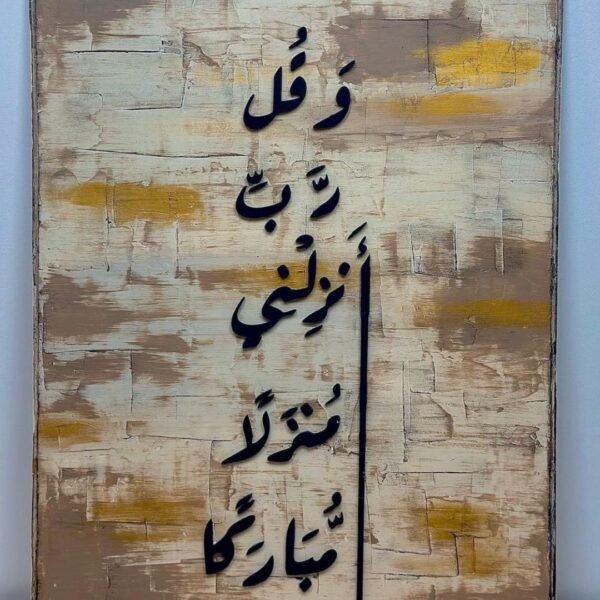 وَقُل
رَّبِّ
أَنزِلْنِي
مُنزَلًا
مُّبَارَكًا